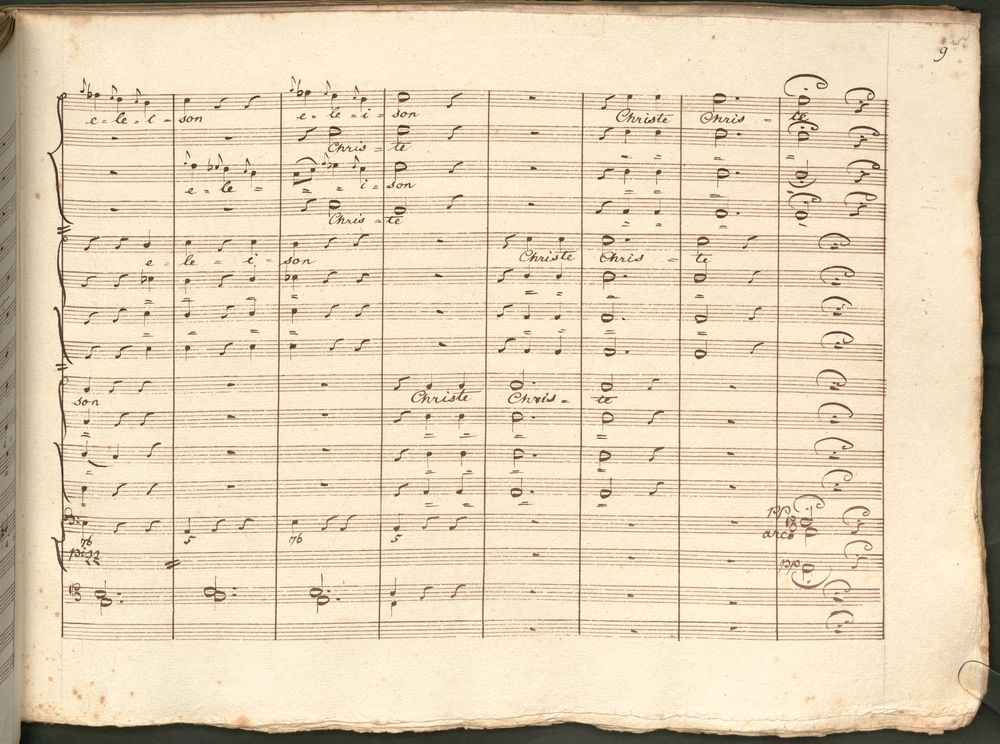 9
e-le-i-son e-le-i-son Christe Chris-te
Chris-te
e-le- - i-son
Chris-te
e-le-i-son Christe Chris-te
son Christe Chris-te
pp
76 5 76 5
arco
pizz
pp